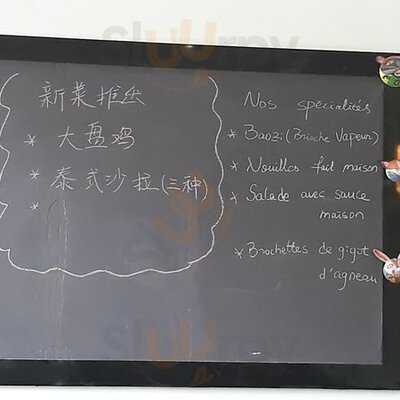 新菜推出
* 大盘鸡
* 泰式沙拉(三种)
*
Nos spécialités
* Baozi (Brioche Vapeur)
* Nouilles fait maison
* Salade avec sauce
maison
* Brochettes de gigot
d'agneau